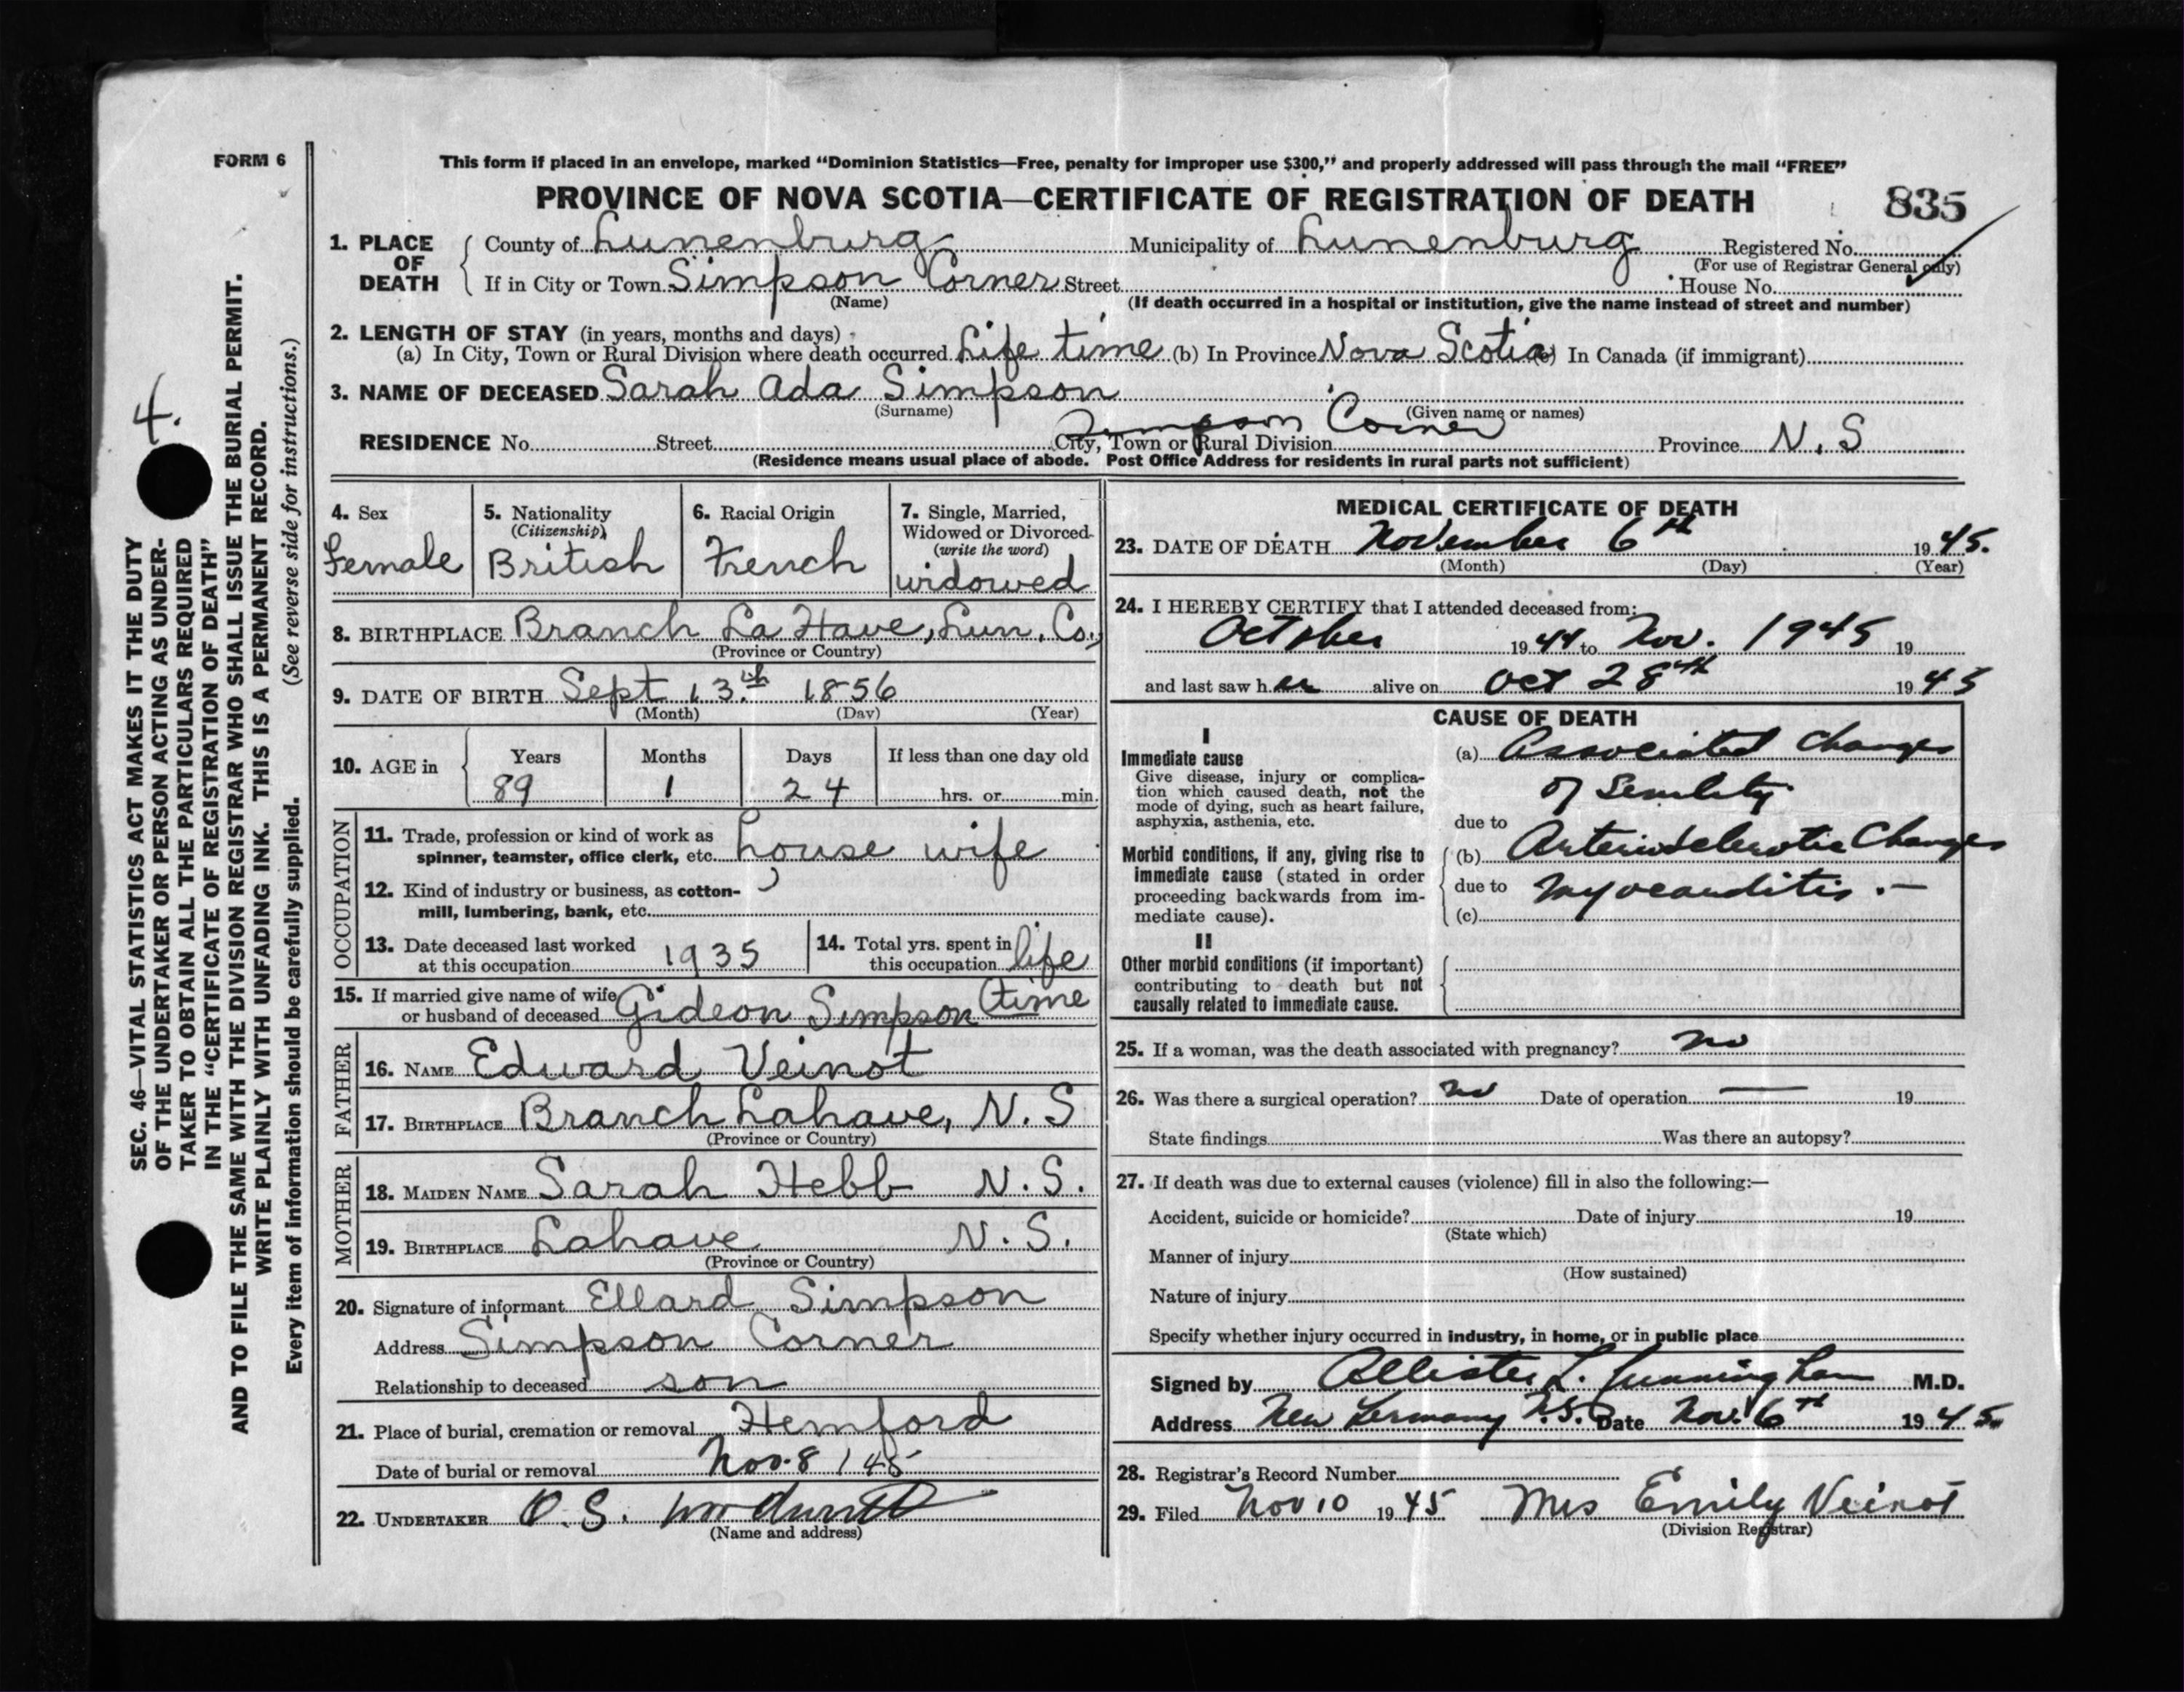 FORM 6
This form if placed in an envelope, marked “Dominion Statistics—Free, penalty for improper use $300,” and properly addressed will pass through the mail “FREE”
PROVINCE OF NOVA SCOTIA—CERTIFICATE OF REGISTRATION OF DEATH 835
1. PLACE OF DEATH
County of Lunenburg Municipality of Lunenburg Registered No.
(For use of Registrar General only)
If in City or Town Simpson Corner Street House No.
(Name) (If death occurred in a hospital or institution, give the name instead of street and number)
2. LENGTH OF STAY (in years, months and days)
(a) In City, Town or Rural Division where death occurred Life time (b) In Province Nova Scotia (c) In Canada (if immigrant)
3. NAME OF DECEASED Sarah Ada Simpson
(Surname) (Given name or names)
Simpson Corner
RESIDENCE No. Street City, Town or Rural Division Province N.S
(Residence means usual place of abode. Post Office Address for residents in rural parts not sufficient)
4. Sex
Female
5. Nationality
(Citizenship)
British
6. Racial Origin
French
7. Single, Married,
Widowed or Divorced
(write the word)
widowed
8. BIRTHPLACE Branch La Have, Lun. Co.,
(Province or Country)
9. DATE OF BIRTH Sept 13th 1856
(Month) (Day) (Year)
10. AGE in
Years Months Days If less than one day old
89 1 24 hrs. or min.
OCCUPATION
11. Trade, profession or kind of work as
spinner, teamster, office clerk, etc. house wife
12. Kind of industry or business, as cotton-
mill, lumbering, bank, etc.
13. Date deceased last worked
at this occupation 1935
14. Total yrs. spent in
this occupation life
time
15. If married give name of wife
or husband of deceased Gideon Simpson
FATHER
16. NAME Edward Veinot
17. BIRTHPLACE Branch Lahave, N.S
(Province or Country)
MOTHER
18. MAIDEN NAME Sarah Hebb N.S.
19. BIRTHPLACE Lahave N.S.
(Province or Country)
20. Signature of informant Ellard Simpson
Address Simpson Corner
Relationship to deceased son
21. Place of burial, cremation or removal Hemford
Date of burial or removal Nov. 8 / 45
22. UNDERTAKER O. S.
(Name and address)
MEDICAL CERTIFICATE OF DEATH
23. DATE OF DEATH November 6th 1945.
(Month) (Day) (Year)
24. I HEREBY CERTIFY that I attended deceased from:
October 1944 to Nov. 1945 19
and last saw her alive on Oct 28th 1945
CAUSE OF DEATH
I
Immediate cause
Give disease, injury or complica-
tion which caused death, not the
mode of dying, such as heart failure,
asphyxia, asthenia, etc.
(a) Associated Changes
of Senility
due to
Morbid conditions, if any, giving rise to
immediate cause (stated in order
proceeding backwards from im-
mediate cause).
(b) Arteriosclerotic Changes
due to myocarditis.—
(c)
II
Other morbid conditions (if important)
contributing to death but not
causally related to immediate cause.
25. If a woman, was the death associated with pregnancy? no
26. Was there a surgical operation? no Date of operation — 19
State findings Was there an autopsy?
27. If death was due to external causes (violence) fill in also the following:—
Accident, suicide or homicide? Date of injury 19
(State which)
Manner of injury
(How sustained)
Nature of injury
Specify whether injury occurred in industry, in home, or in public place
Signed by Allister L. Cunningham M.D.
Address New Germany N.S. Date Nov. 6th 1945
28. Registrar's Record Number
29. Filed Nov 10 1945 Mrs Emily Veinot
(Division Registrar)
4.
SEC. 46—VITAL STATISTICS ACT MAKES IT THE DUTY
OF THE UNDERTAKER OR PERSON ACTING AS UNDER-
TAKER TO OBTAIN ALL THE PARTICULARS REQUIRED
IN THE “CERTIFICATE OF REGISTRATION OF DEATH”
AND TO FILE THE SAME WITH THE DIVISION REGISTRAR WHO SHALL ISSUE THE BURIAL PERMIT.
WRITE PLAINLY WITH UNFADING INK. THIS IS A PERMANENT RECORD.
Every item of information should be carefully supplied. (See reverse side for instructions.)